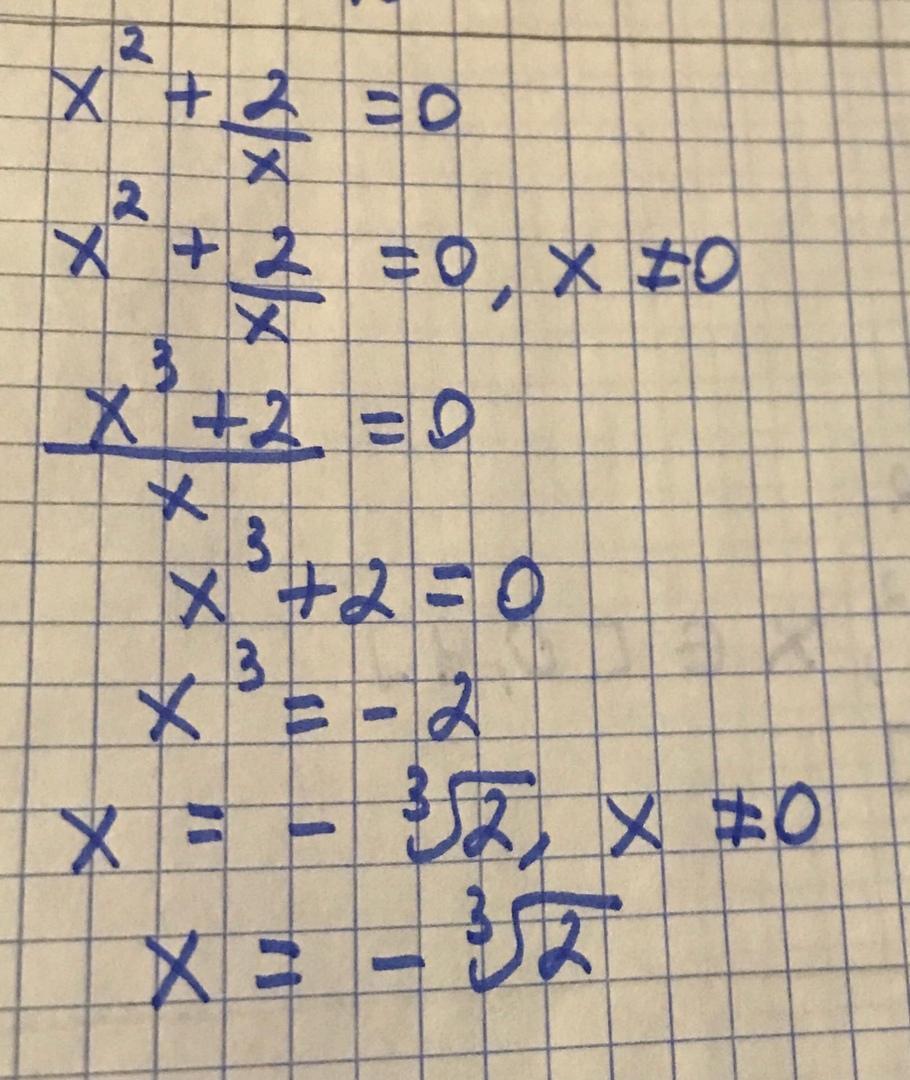 x² + 2/x = 0
x² + 2/x = 0, x ≠ 0
(x³ + 2)/x = 0
x³ + 2 = 0
x³ = - 2
x = - ∛2, x ≠ 0
x = - ∛2